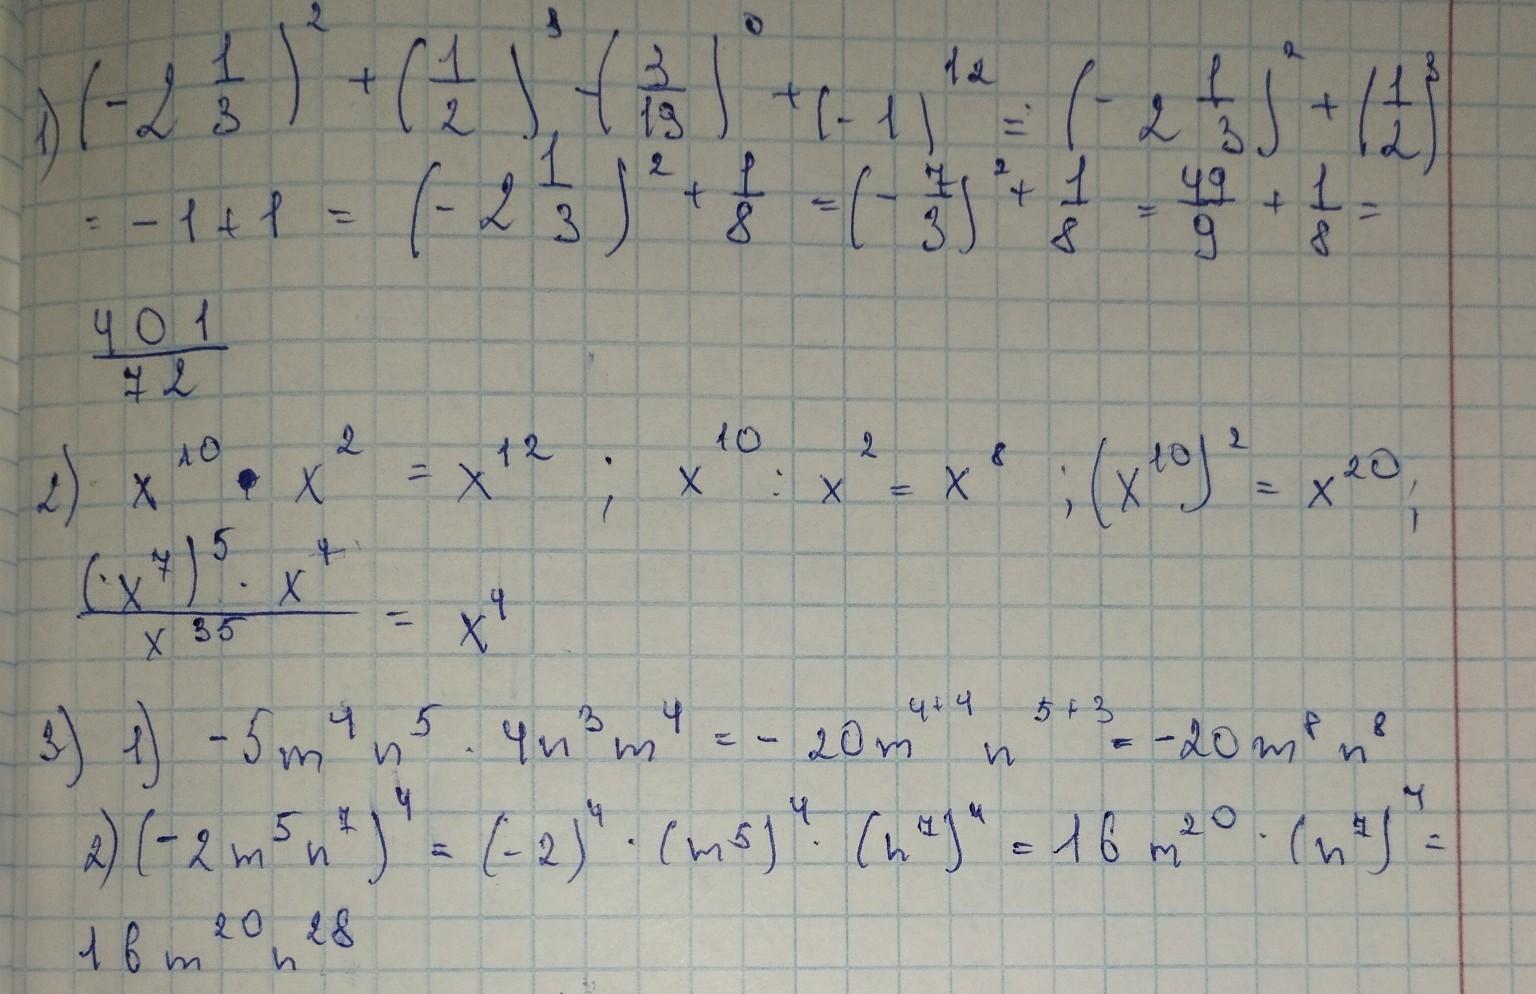 1) (-2 1/3)² + (1/2)³ - (3/19)⁰ + (-1)¹² = (-2 1/3)² + (1/2)³
= -1 + 1 = (-2 1/3)² + 1/8 = (-7/3)² + 1/8 = 49/9 + 1/8 =
401/72
2) x¹⁰ • x² = x¹² ; x¹⁰ : x² = x⁸ ; (x¹⁰)² = x²⁰ ;
(x⁷)⁵ · x⁴ / x³⁵ = x⁴
3) 1) -5m⁴n⁵ · 4n³m⁴ = -20m⁴⁺⁴ n⁵⁺³ = -20m⁸n⁸
2) (-2m⁵n⁷)⁴ = (-2)⁴ · (m5)⁴ · (n⁷)⁴ = 16m²⁰ · (n⁷)⁴ =
16m²⁰n²⁸